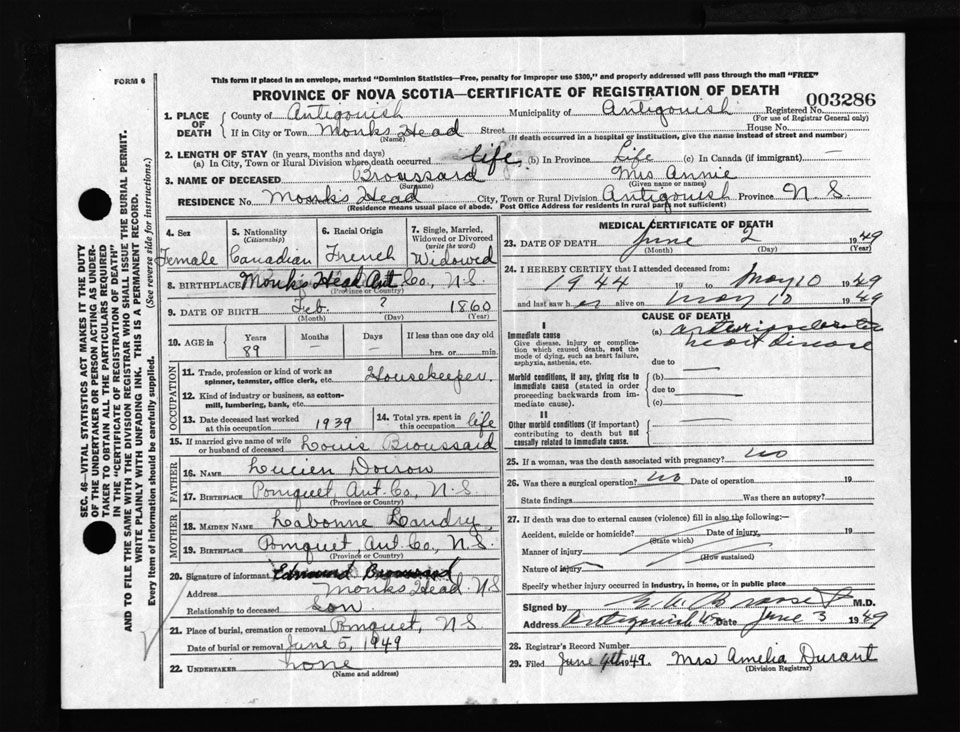 FORM 6
This form if placed in an envelope, marked "Dominion Statistics—Free, penalty for improper use $300," and properly addressed will pass through the mail "FREE"
PROVINCE OF NOVA SCOTIA—CERTIFICATE OF REGISTRATION OF DEATH
003286
1. PLACE OF DEATH
County of Antigonish Municipality of Antigonish Registered No.
(For use of Registrar General only)
If in City or Town Monks Head Street House No.
(Name) (If death occurred in a hospital or institution, give the name instead of street and number)
2. LENGTH OF STAY (in years, months and days)
(a) In City, Town or Rural Division where death occurred life, (b) In Province Life (c) In Canada (if immigrant) —
3. NAME OF DECEASED Broussard Mrs Annie
(Surname) (Given name or names)
RESIDENCE No. Monk's Head City, Town or Rural Division Antigonish Province N. S
(Residence means usual place of abode. Post Office Address for residents in rural parts not sufficient)
4. Sex Female
5. Nationality (Citizenship) Canadian
6. Racial Origin French
7. Single, Married, Widowed or Divorced (write the word) Widowed
8. BIRTHPLACE Monk's Head Ant Co., N.S.
(Province or Country)
9. DATE OF BIRTH Feb. ? 1860
(Month) (Day) (Year)
10. AGE in Years 89 Months — Days If less than one day old
hrs. or min.
OCCUPATION
11. Trade, profession or kind of work as spinner, teamster, office clerk, etc. Housekeeper.
12. Kind of industry or business, as cotton-mill, lumbering, bank, etc.
13. Date deceased last worked at this occupation 1939
14. Total yrs. spent in this occupation life
15. If married give name of wife or husband of deceased Louis Broussard
FATHER
16. NAME Lucien Doiron
17. BIRTHPLACE Pomquet Ant. Co, N.S.
(Province or Country)
MOTHER
18. MAIDEN NAME Labonne Landry,
19. BIRTHPLACE Pomquet, Ant. Co., N.S.
(Province or Country)
20. Signature of informant Edmund Broussard
Address Monks Head. N.S
Relationship to deceased son.
21. Place of burial, cremation or removal Pomquet, N.S.
Date of burial or removal June 5, 1949
22. UNDERTAKER none
(Name and address)
MEDICAL CERTIFICATE OF DEATH
23. DATE OF DEATH June 2 1949
(Month) (Day) (Year)
24. I HEREBY CERTIFY that I attended deceased from:
1944 19 to May 10 1949
and last saw her alive on May 10 1949
CAUSE OF DEATH
I
Immediate cause
Give disease, injury or complication which caused death, not the mode of dying, such as heart failure, asphyxia, asthenia, etc.
(a) arteriosclerotic heart disease
due to
Morbid conditions, if any, giving rise to immediate cause (stated in order proceeding backwards from immediate cause).
(b)
due to
(c)
II
Other morbid conditions (if important) contributing to death but not causally related to immediate cause.
25. If a woman, was the death associated with pregnancy? No
26. Was there a surgical operation? No Date of operation 19
State findings Was there an autopsy?
27. If death was due to external causes (violence) fill in also the following:—
Accident, suicide or homicide? Date of injury, 19
(State which)
Manner of injury
(How sustained)
Nature of injury
Specify whether injury occurred in industry, in home, or in public place
Signed by M.D.
Address Antigonish NS Date June 3 1949
28. Registrar's Record Number
29. Filed June 4th 1949. Mrs Amelia Durant
(Division Registrar)
SEC. 46—VITAL STATISTICS ACT MAKES IT THE DUTY
OF THE UNDERTAKER OR PERSON ACTING AS UNDER-
TAKER TO OBTAIN ALL THE PARTICULARS REQUIRED
IN THE "CERTIFICATE OF REGISTRATION OF DEATH"
AND TO FILE THE SAME WITH THE DIVISION REGISTRAR WHO SHALL ISSUE THE BURIAL PERMIT.
WRITE PLAINLY WITH UNFADING INK. THIS IS A PERMANENT RECORD.
Every item of information should be carefully supplied. (See reverse side for instructions.)